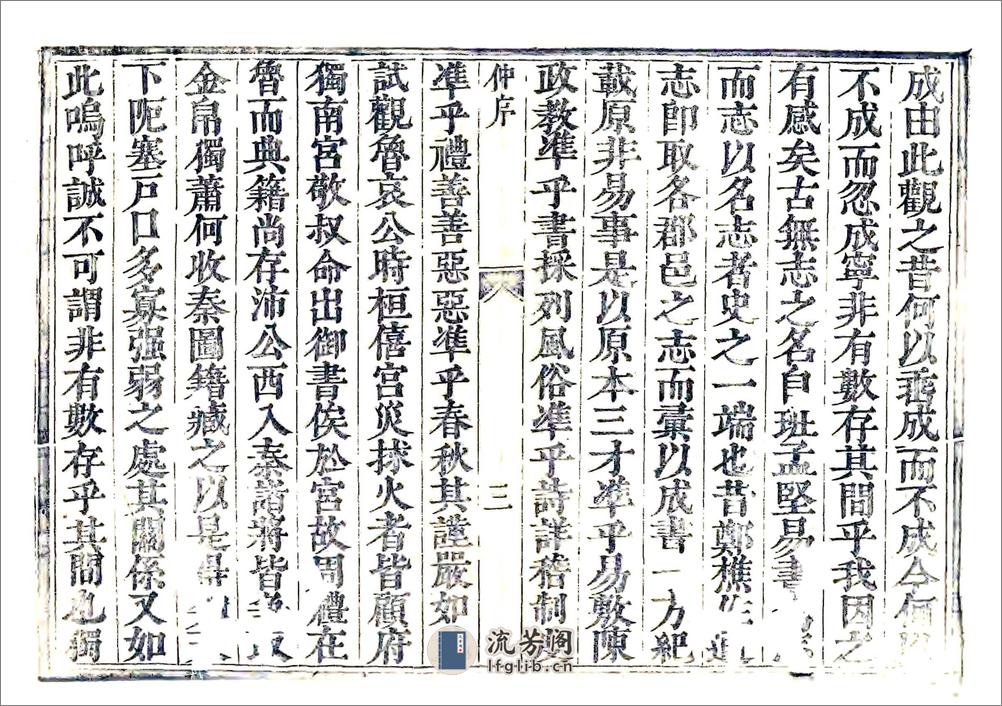 成由此觀之昔何以垂成而不成今何
不成而忽成寧非有數存其間乎我因之
有感矣古無志之名自班孟堅易書
而志以名志者史之一端也昔鄭樵作通
志卽取各郡邑之志而彙以成書一方紀
載原非易事是以原本三才準乎易敷陳
政教準乎書採列風俗準乎詩詳稽制
仲序
三
準乎禮善善惡惡準乎春秋其謹嚴如
試觀魯哀公時桓僖宮災捄火者皆顧府
獨南宮敬叔命出御書俟於宮故周禮在
魯而典籍尚存沛公西入秦諸將皆爭取
金帛獨蕭何收秦圖籍藏之以是得
下阨塞戶口多寡强弱之處其關係又如
此嗚呼誠不可謂非有數存乎其間也獨
流芳阁
lfglib.cn